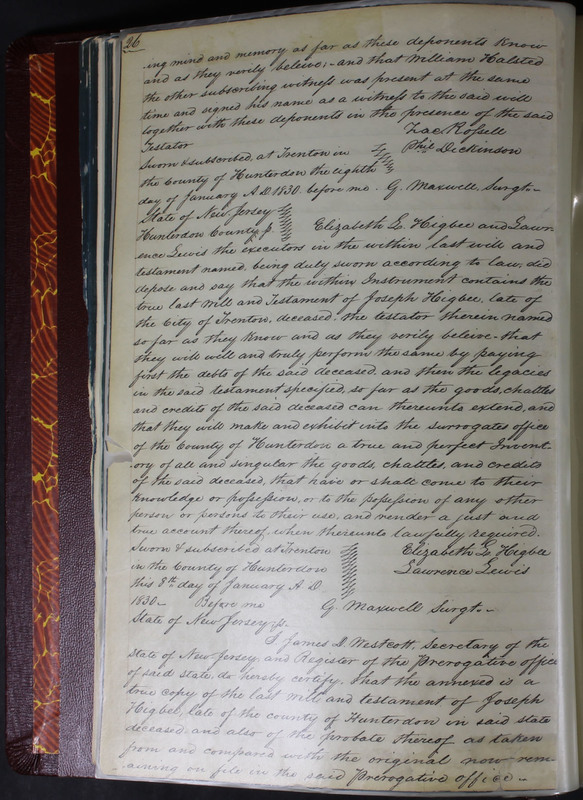 26
ing mind and memory as far as these deponents know
and as they verily beleive; - and that William Halsted
the other subscribing witness was present at the same
time and signed his name as a witness to the said will
together with these deponents in the presence of the said
Testator Zac Rossell
Sworn & subscribed, at Trenton in Phil Dickinson
the County of Hunterdon the eighth
day of January A.D. 1830. before me. G. Maxwell Surgt. -
State of New Jersey
Hunterdon County Elizabeth L. Higbee and Lawr-
ence Lewis the executors in the within last will and
testament named, being duly sworn according to law, did
depose and say that the within Instrument contains the
true last Will and Testament of Joseph Higbee, late of
the City of Trenton, deceased, the testator therein named
so far as they know and as they verily beleive - that
they will well and truly perform the same by paying
first the debts of the said deceased, and then the legacies
in the said testament specified, so far as the goods, chattles
and credits of the said deceased can thereunto extend, and
that they will make and exhibit into the surrogates office
of the County of Hunterdon a true and perfect Invent-
ory of all and singular the goods, chattles, and credits
of the said deceased, that have or shall come to their
knowledge or possession, or to the possession of any other
person or persons to their use, and render a just and
true account thereof, when thereunto lawfully required.
Sworn & subscribed at Trenton Elizabeth L. Higbee
in the County of Hunterdon Lawrence Lewis
this 8th day of January A.D.
1830 - Before me G. Maxwell Surgt. -
State of New Jersey
I James D. Westcott, Secretary of the
State of New Jersey, and Register of the Prerogative office
of said state, do hereby certify, that the annexed is a
true copy of the last will and testament of Joseph
Higbee, late of the county of Hunterdon in said state
deceased, and also of the probate thereof as taken
from and compared with the original now rem-
aining on file in the said Prerogative office -